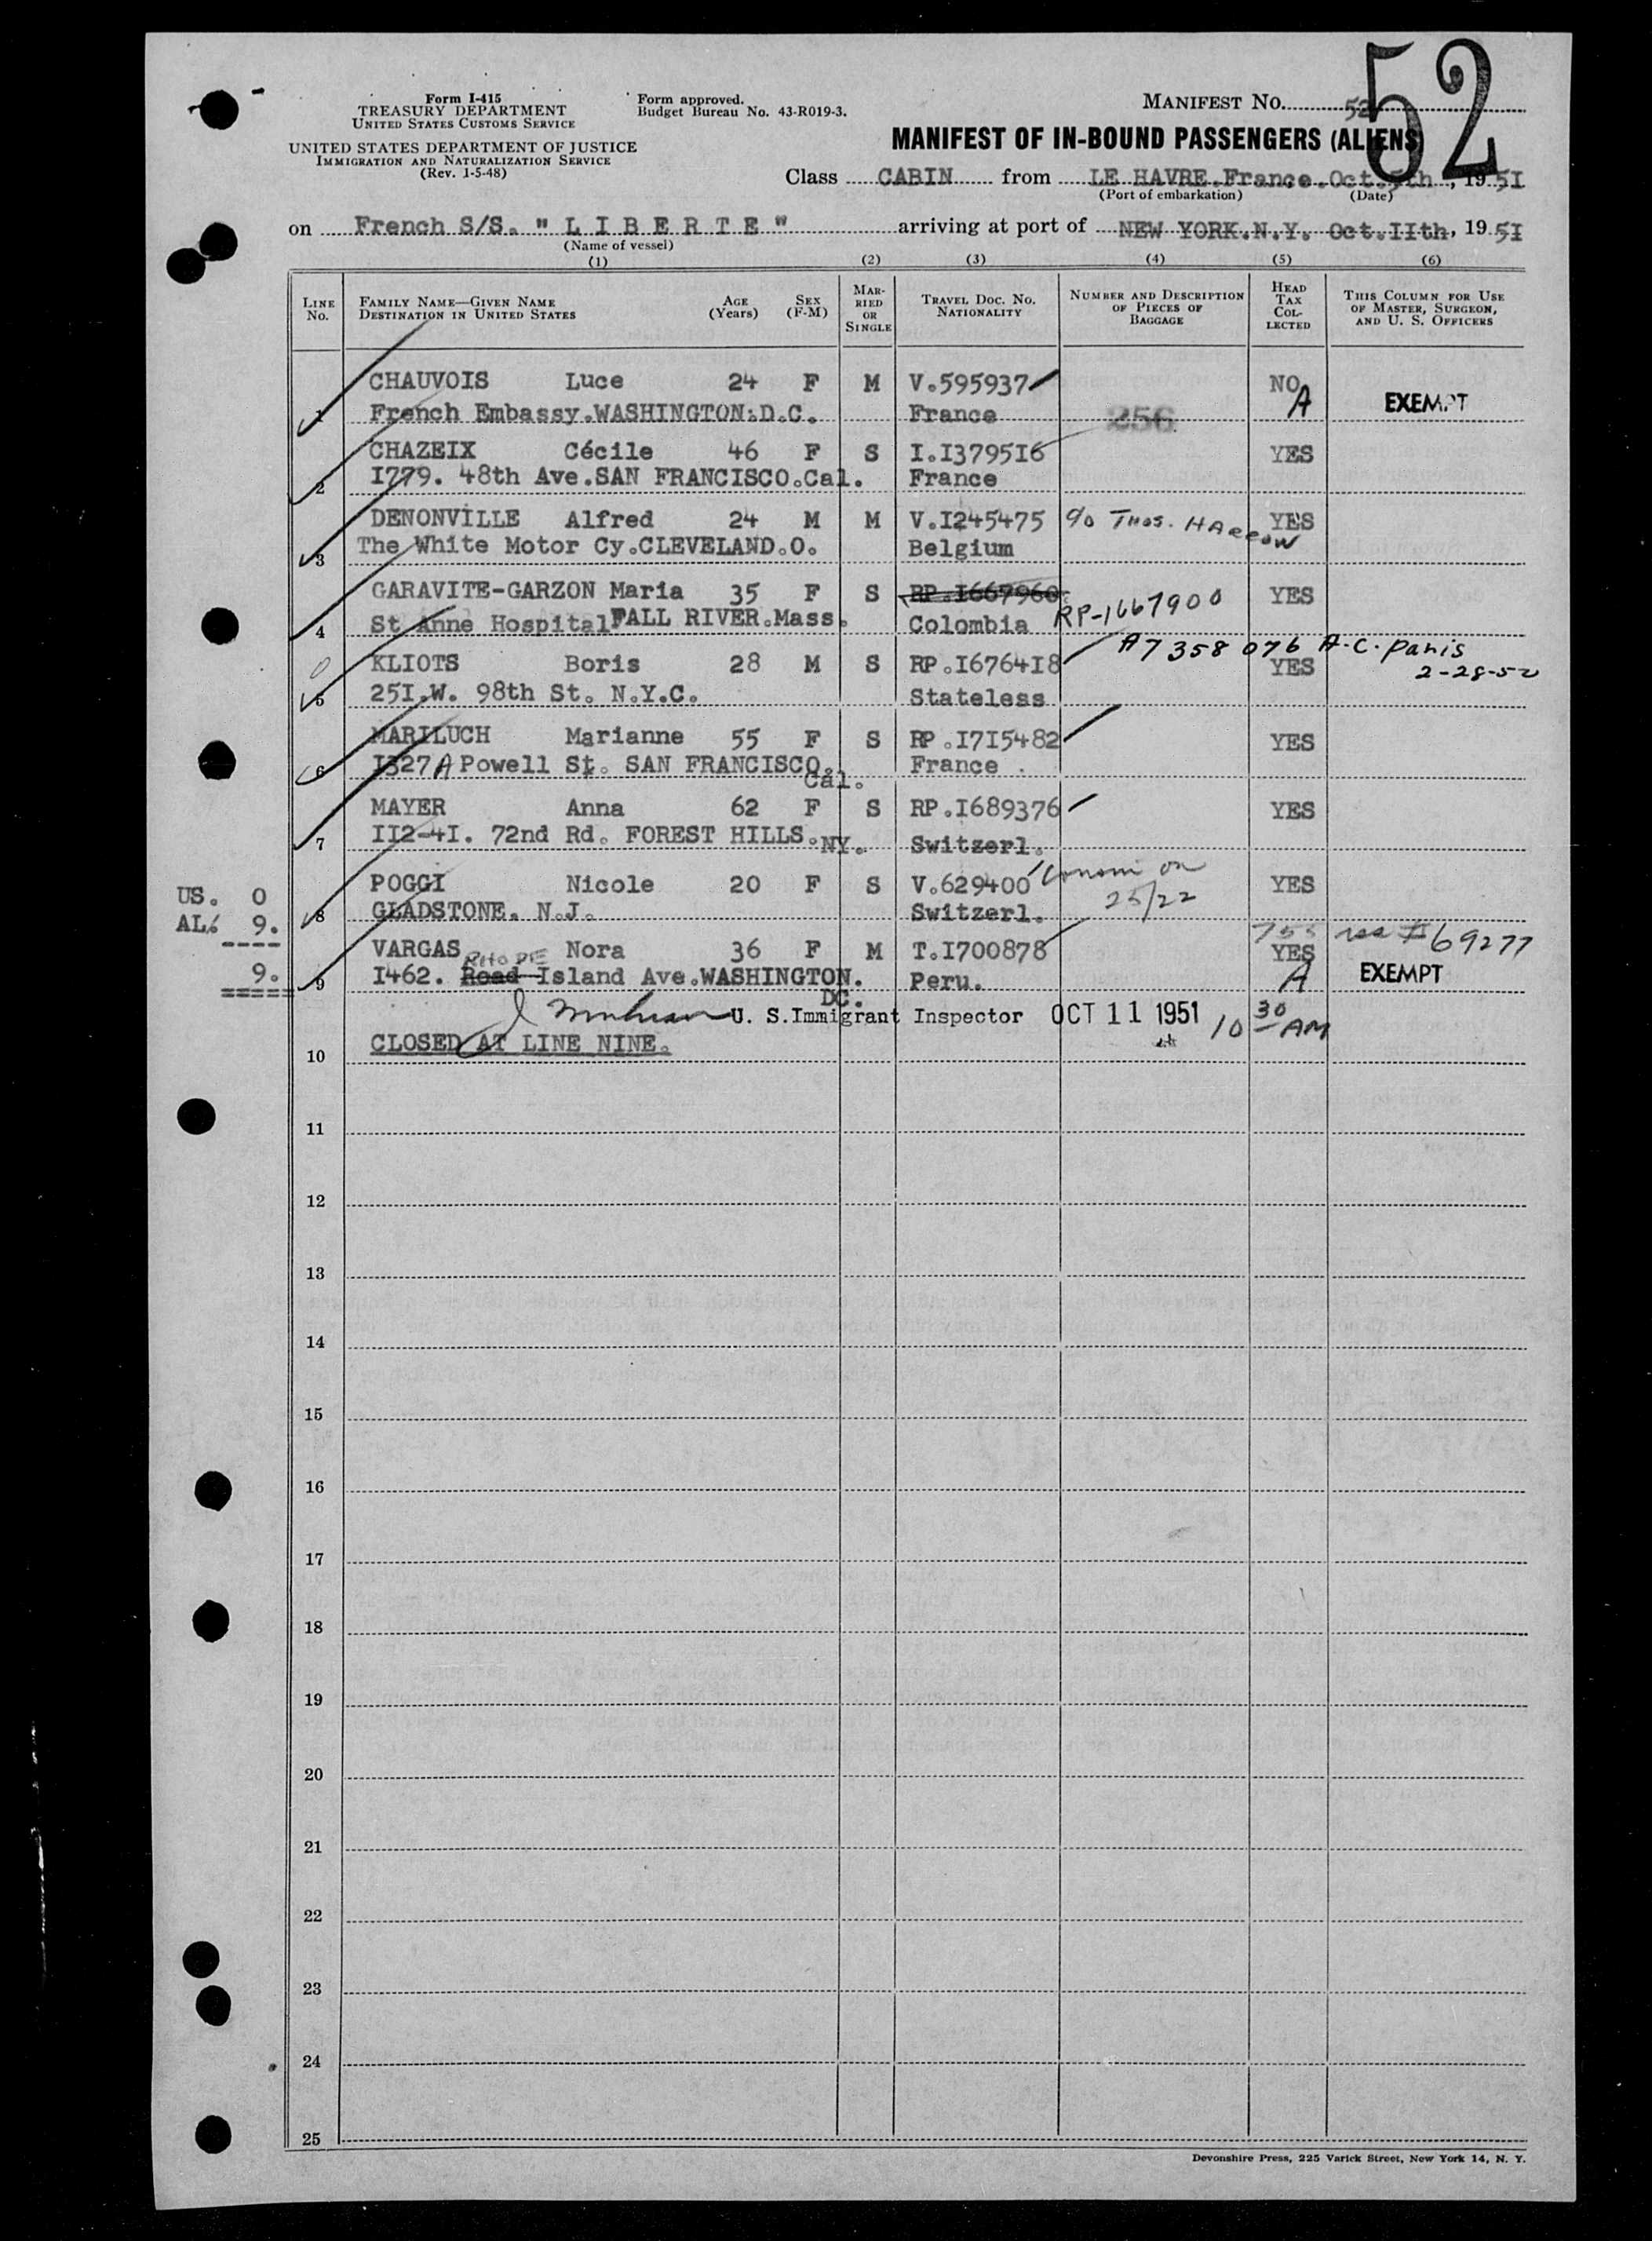 52
Form I-415
TREASURY DEPARTMENT
UNITED STATES CUSTOMS SERVICE
UNITED STATES DEPARTMENT OF JUSTICE
IMMIGRATION AND NATURALIZATION SERVICE
(Rev. 1-5-48)
Form approved.
Budget Bureau No. 43-R019-3.
MANIFEST NO. 52
MANIFEST OF IN-BOUND PASSENGERS (ALIENS)
Class CABIN from LE HAVRE.France.Oct.5th, 1951
(Port of embarkation) (Date)
on French S/S. " L I B E R T E " arriving at port of NEW YORK.N.Y. Oct.IIth, 1951
(Name of vessel)
(1) (2) (3) (4) (5) (6)
LINE No. FAMILY NAME—GIVEN NAME DESTINATION IN UNITED STATES AGE (Years) SEX (F-M) MARRIED OR SINGLE TRAVEL DOC. NO. NATIONALITY NUMBER AND DESCRIPTION OF PIECES OF BAGGAGE HEAD TAX COLLECTED THIS COLUMN FOR USE OF MASTER, SURGEON, AND U. S. OFFICERS
CHAUVOIS Luce 24 F M V.595937 NO
1 French Embassy.WASHINGTON.D.C. France 256 A EXEMPT
CHAZEIX Cécile 46 F S I.I379516 YES
2 I779. 48th Ave.SAN FRANCISCO.Cal. France
DENONVILLE Alfred 24 M M V.I245475 c/o Thos. HARROW YES
3 The White Motor Cy.CLEVELAND.O. Belgium
GARAVITE-GARZON Maria 35 F S RP.I667960 YES
4 St Anne Hospital FALL RIVER.Mass. Colombia RP-1667900
A7 358 076 A.C. Paris
KLIOTS Boris 28 M S RP.I676418 YES 2-28-52
5 25I.W. 98th St. N.Y.C. Stateless
MARILUCH Marianne 55 F S RP.I7I5482 YES
6 I327 A Powell St. SAN FRANCISCO. Cal. France
MAYER Anna 62 F S RP.I689376 YES
7 II2-4I. 72nd Rd. FOREST HILLS.NY. Switzerl.
POGGI Nicole 20 F S V.629400 YES
US. 0
8 GLADSTONE. N.J. Switzerl. 25/22
AL. 9.
69277
VARGAS Nora 36 F M T.I700878 YES
9.
9 I462. Road RHODE Island Ave.WASHINGTON. DC. Peru. A EXEMPT
U. S.Immigrant Inspector OCT 11 1951 10 30 AM
10 CLOSED AT LINE NINE.
11
12
13
14
15
16
17
18
19
20
21
22
23
24
25
Devonshire Press, 225 Varick Street, New York 14, N. Y.